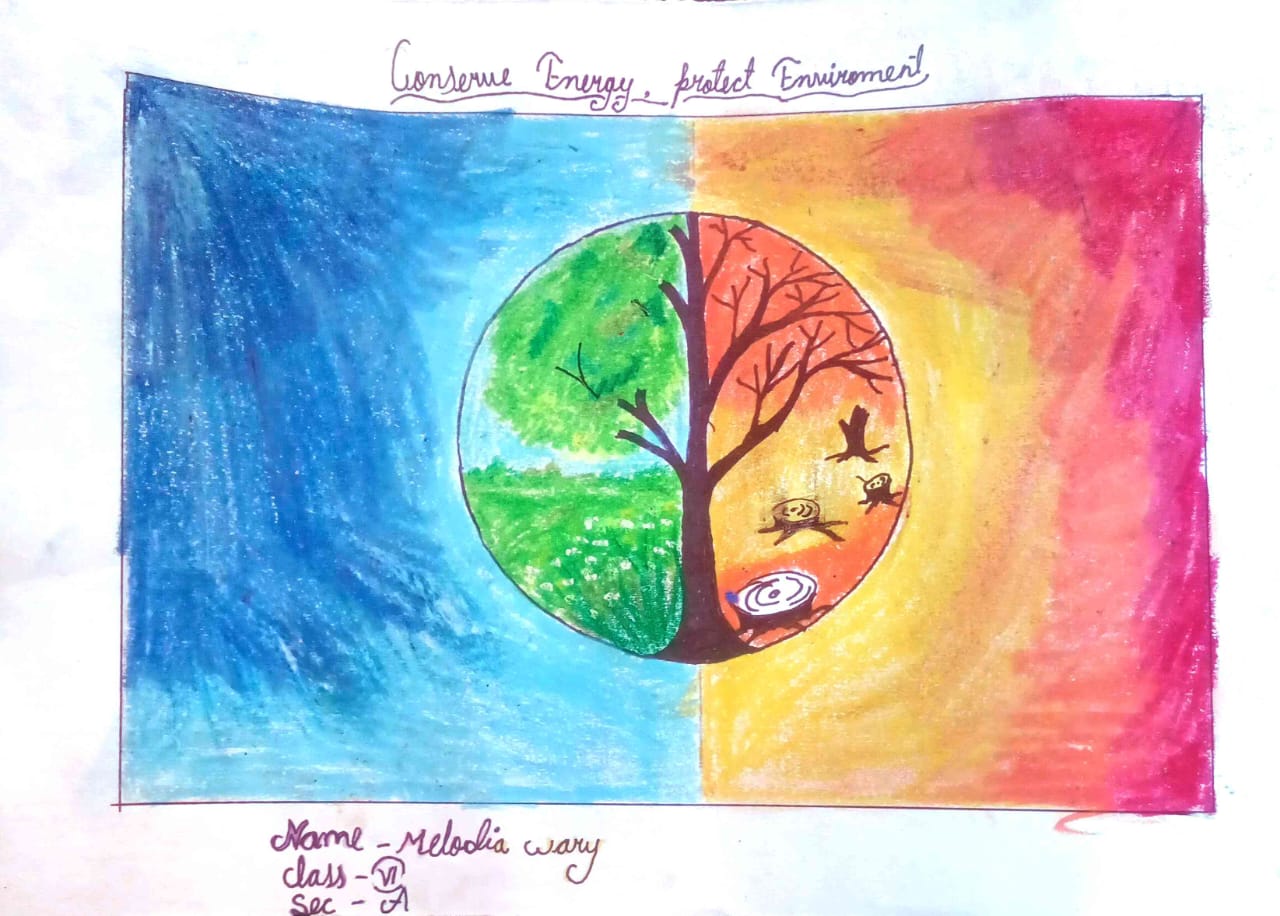 Conserve Energy, protect Enviroment
Name - Melodia wary
class - VI
Sec - A